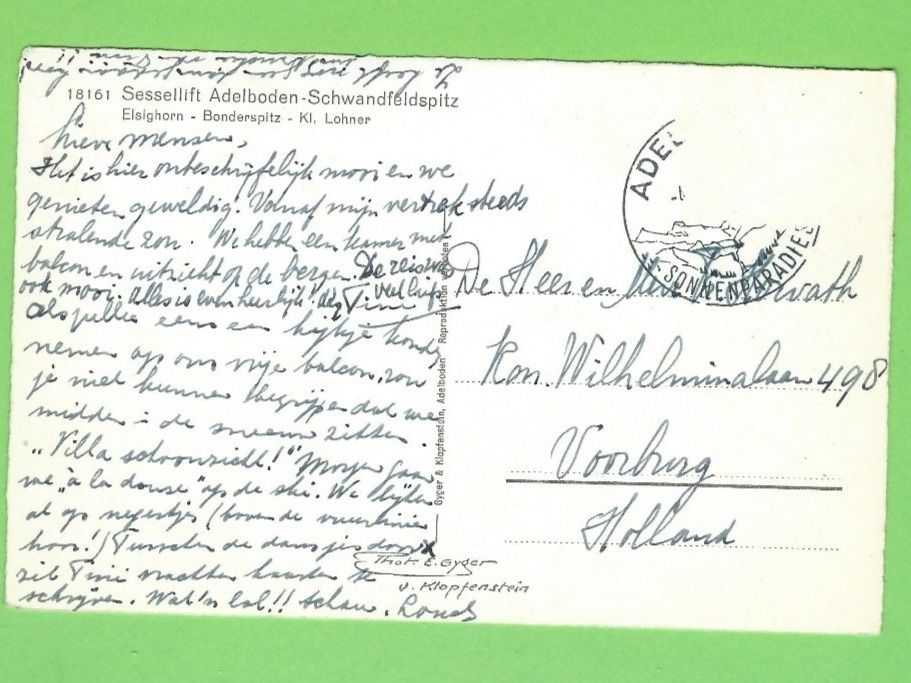 18161 Sessellift Adelboden-Schwandfeldspitz
Elsighorn - Bonderspitz - Kl. Lohner
Lieve mensen,
Het is hier onbeschrijfelijk mooi en we
genieten geweldig! Vanaf mijn vertrek steeds
stralende zon. We hebben een kamer met
balcon en uitzicht op de bergen. De reis was
ook mooi. Alles is even heerlijk! dag veel liefs
Tini
Als jullie eens een kijkje konden
nemen op ons vrije balcon, zou
je niet kunnen begrijpen dat we
midden in de sneeuw zitten.
"Villa schoonzicht!" Morgen gaan
we "à la douse" op de ski. We lijken
al op negertjes (boven de
hoor!) Tusschen de dansjes door
zit Tini kaarten te
schrijven. Wat 'n lol!!
Gyger & Klopfenstein, Adelboden Reproduktion verboten
Phot. E. Gyger
u. Klopfenstein
ADEL
SONNENPARADIES
De Heer en Mevr.
Kon. Wilhelminalaan 498
Voorburg
Holland